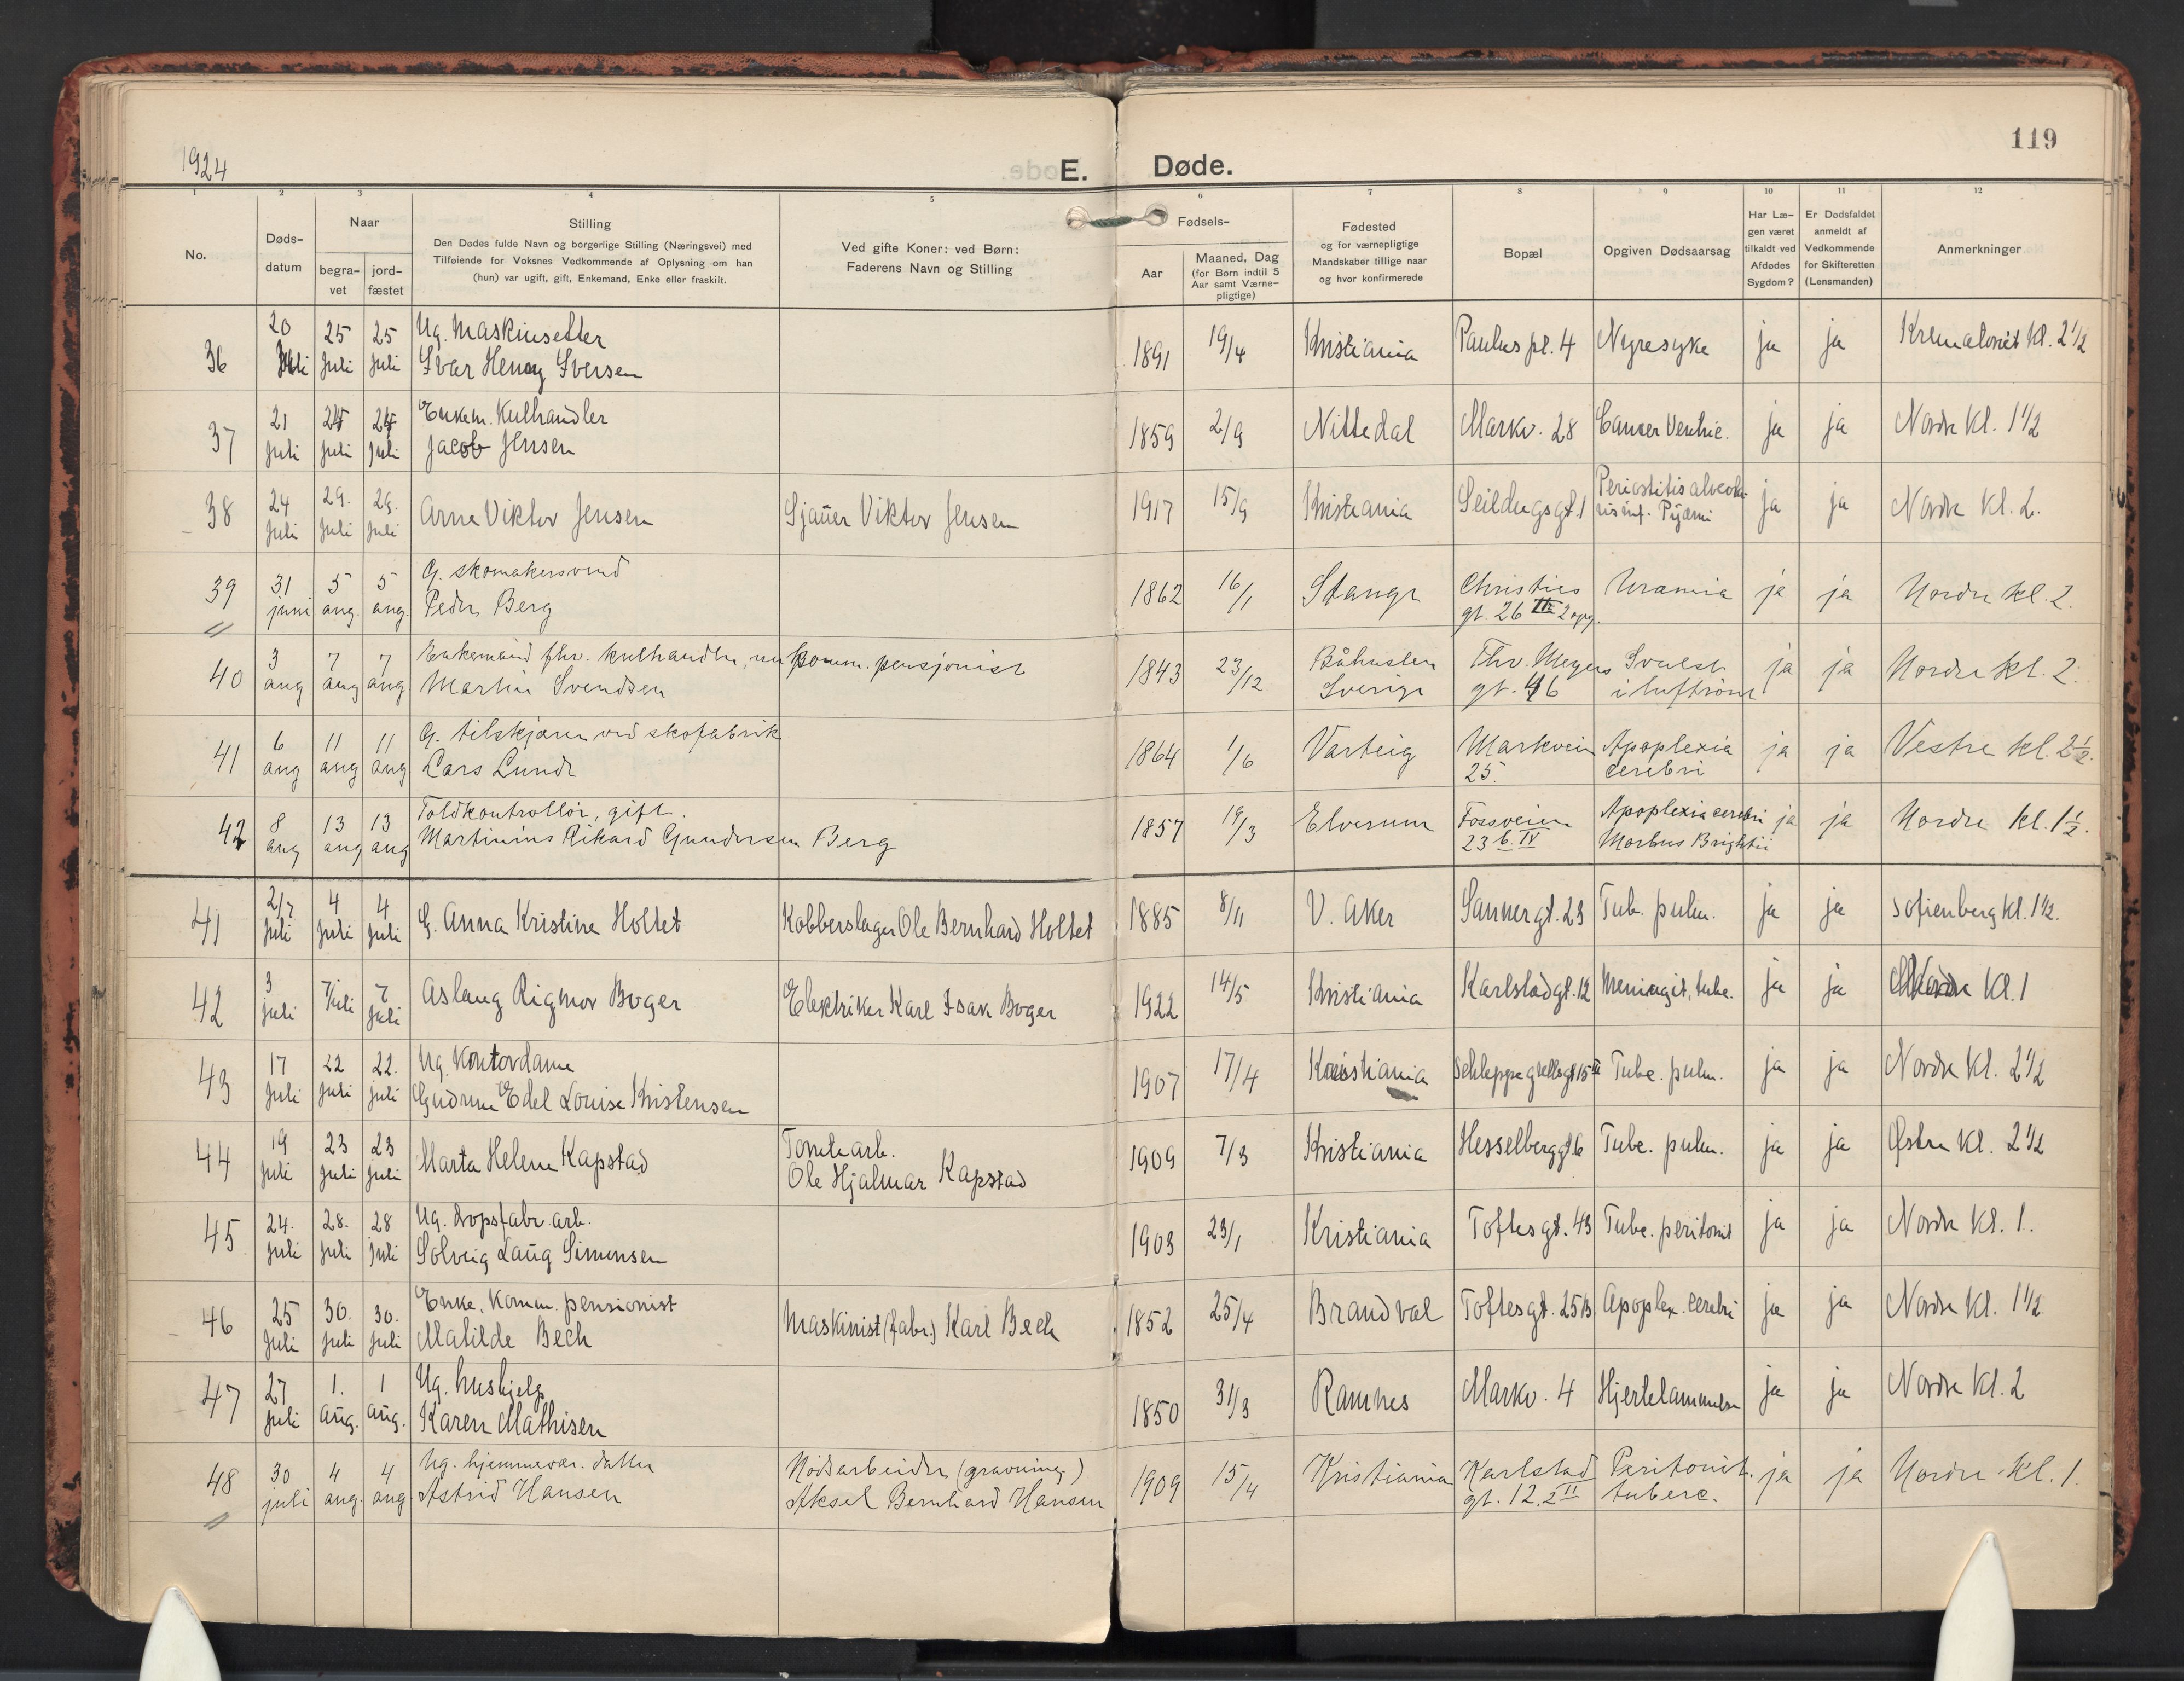 1924
E. Døde.
119
1 2 3 4 5 6 7 8 9 10 11 12
No.
Døds-
datum
Naar
begra-
vet
jord-
fæstet
Stilling
Den Dødes fulde Navn og borgerlige Stilling (Næringsvei) med
Tilføiende for Voksnes Vedkommende af Oplysning om han
(hun) var ugift, gift, Enkemand, Enke eller fraskilt.
Ved gifte Koner: ved Børn:
Faderens Navn og Stilling
Fødsels-
Aar
Maaned, Dag
(for Børn indtil 5
Aar samt Værne-
pligtige)
Fødested
og for værnepligtige
Mandskaber tillige naar
og hvor konfirmerede
Bopæl
Opgiven Dødsaarsag
Har Læ-
gen været
tilkaldt ved
Afdødes
Sygdom?
Er Dødsfaldet
anmeldt af
Vedkommende
for Skifteretten
(Lensmanden)
Anmerkninger
36 20 juli 25 juli 25 juli Ug. maskinsetter
Ivar Henry Iversen 1891 19/4 Kristiania Paulus pl. 4 Nyresyke ja ja Krematoriet kl. 2 1/2
37 21 juli 24 juli 24 juli Enkem. Kulhandler
Jacob Jensen 1859 2/9 Nittedal Markv. 28 Cancer Ventric. ja ja Nordre kl. 1 1/2
38 24 juli 29. juli 29. juli Arne Viktor Jensen Sjauer Viktor Jensen 1917 15/9 Kristiania Seildugsgt. 1 Periostitis alveola-
ris inf. Pyæmi ja ja Nordre kl. 2.
39 31 juni 5 aug. 5 aug. G. skomakersvend
Peder Berg 1862 16/1 Stange Christies
gt. 26 III 2 opg. Uræmia ja ja Nordre kl. 2.
40 3 aug 7 aug 7 aug. Enkemand fhv. kulhandler, nu komm. pensjonist
Martin Svendsen 1843 23/12 Båhuslen
Sverige Thv. Meyers
gt. 46 Svulst
i luftrøret ja ja Nordre kl. 2.
41 6 aug 11 aug 11 aug G. tilskjærer ved skofabrik
Lars Lunde 1864 1/6 Varteig Markveien
25. Apoplexia
cerebri ja ja Vestre kl. 2 1/2.
42 8 aug 13 aug 13 aug Toldkontrollør, gift.
Martinius Rikard Gundersen Berg 1857 19/3 Elverum Fossveien
23 b. IV Apoplexia cerebri
Morbus Brightii ja ja Nordre kl. 1 1/2.
41 2/7 juli 4 juli 4 juli G. Anna Kristine Holtet Kobberslager Ole Bernhard Holtet 1885 8/11 V. Aker Sannergt. 23 Tub. pulm. ja ja Sofienberg kl. 1 1/2.
42 3 juli 7/juli 7 juli Aslaug Rigmor Boger Elektriker Karl Isak Boger 1922 14/5 Kristiania Karlstadgt. 12 Meningit. tube. ja ja Nordre kl. 1
43 17 juli 22 juli 22. juli Ug. Kontordame
Gudrun Edel Louise Kristensen 1907 17/4 Kristiania Schleppegrellsgt 15 II Tube. pulm. ja ja Nordre kl. 2 1/2
44 19 juli 23 juli 23 juli Marta Helene Kapstad Tomtearb.
Ole Hjalmar Kapstad 1909 7/3 Kristiania Hesselberggt 6 Tube. pulm. ja ja Østre kl. 2 1/2
45 24. juli 28. juli 28 juli Ug. dropsfabr. arb.
Solveig Laug Simonsen 1903 23/1 Kristiania Toftesgt. 43 Tube. peritonit ja ja Nordre kl. 1.
46 25 juli 30. juli 30. juli Enke, Komm. pensionist
Matilde Bech Maskinist (fabr.) Karl Bech 1852 25/4 Brandval Toftesgt. 25 B Apoplex. cerebri ja ja Nordre kl. 1 1/2
47 27 juli 1. aug. 1 aug. Ug. hushjelp
Karen Mathisen 1850 31/3 Ramnes Markv. 4 Hjertelammelse ja ja Nordre kl. 2
48 30 juli 4 aug. 4 aug. Ug. hjemmevær. datter
Astrid Hansen Nødsarbeider (gravning)
Aksel Bernhard Hansen 1909 15/4 Kristiania Karlstad
gt. 12, 2 II Peritonit.
tuberc. ja ja Nordre kl. 1.